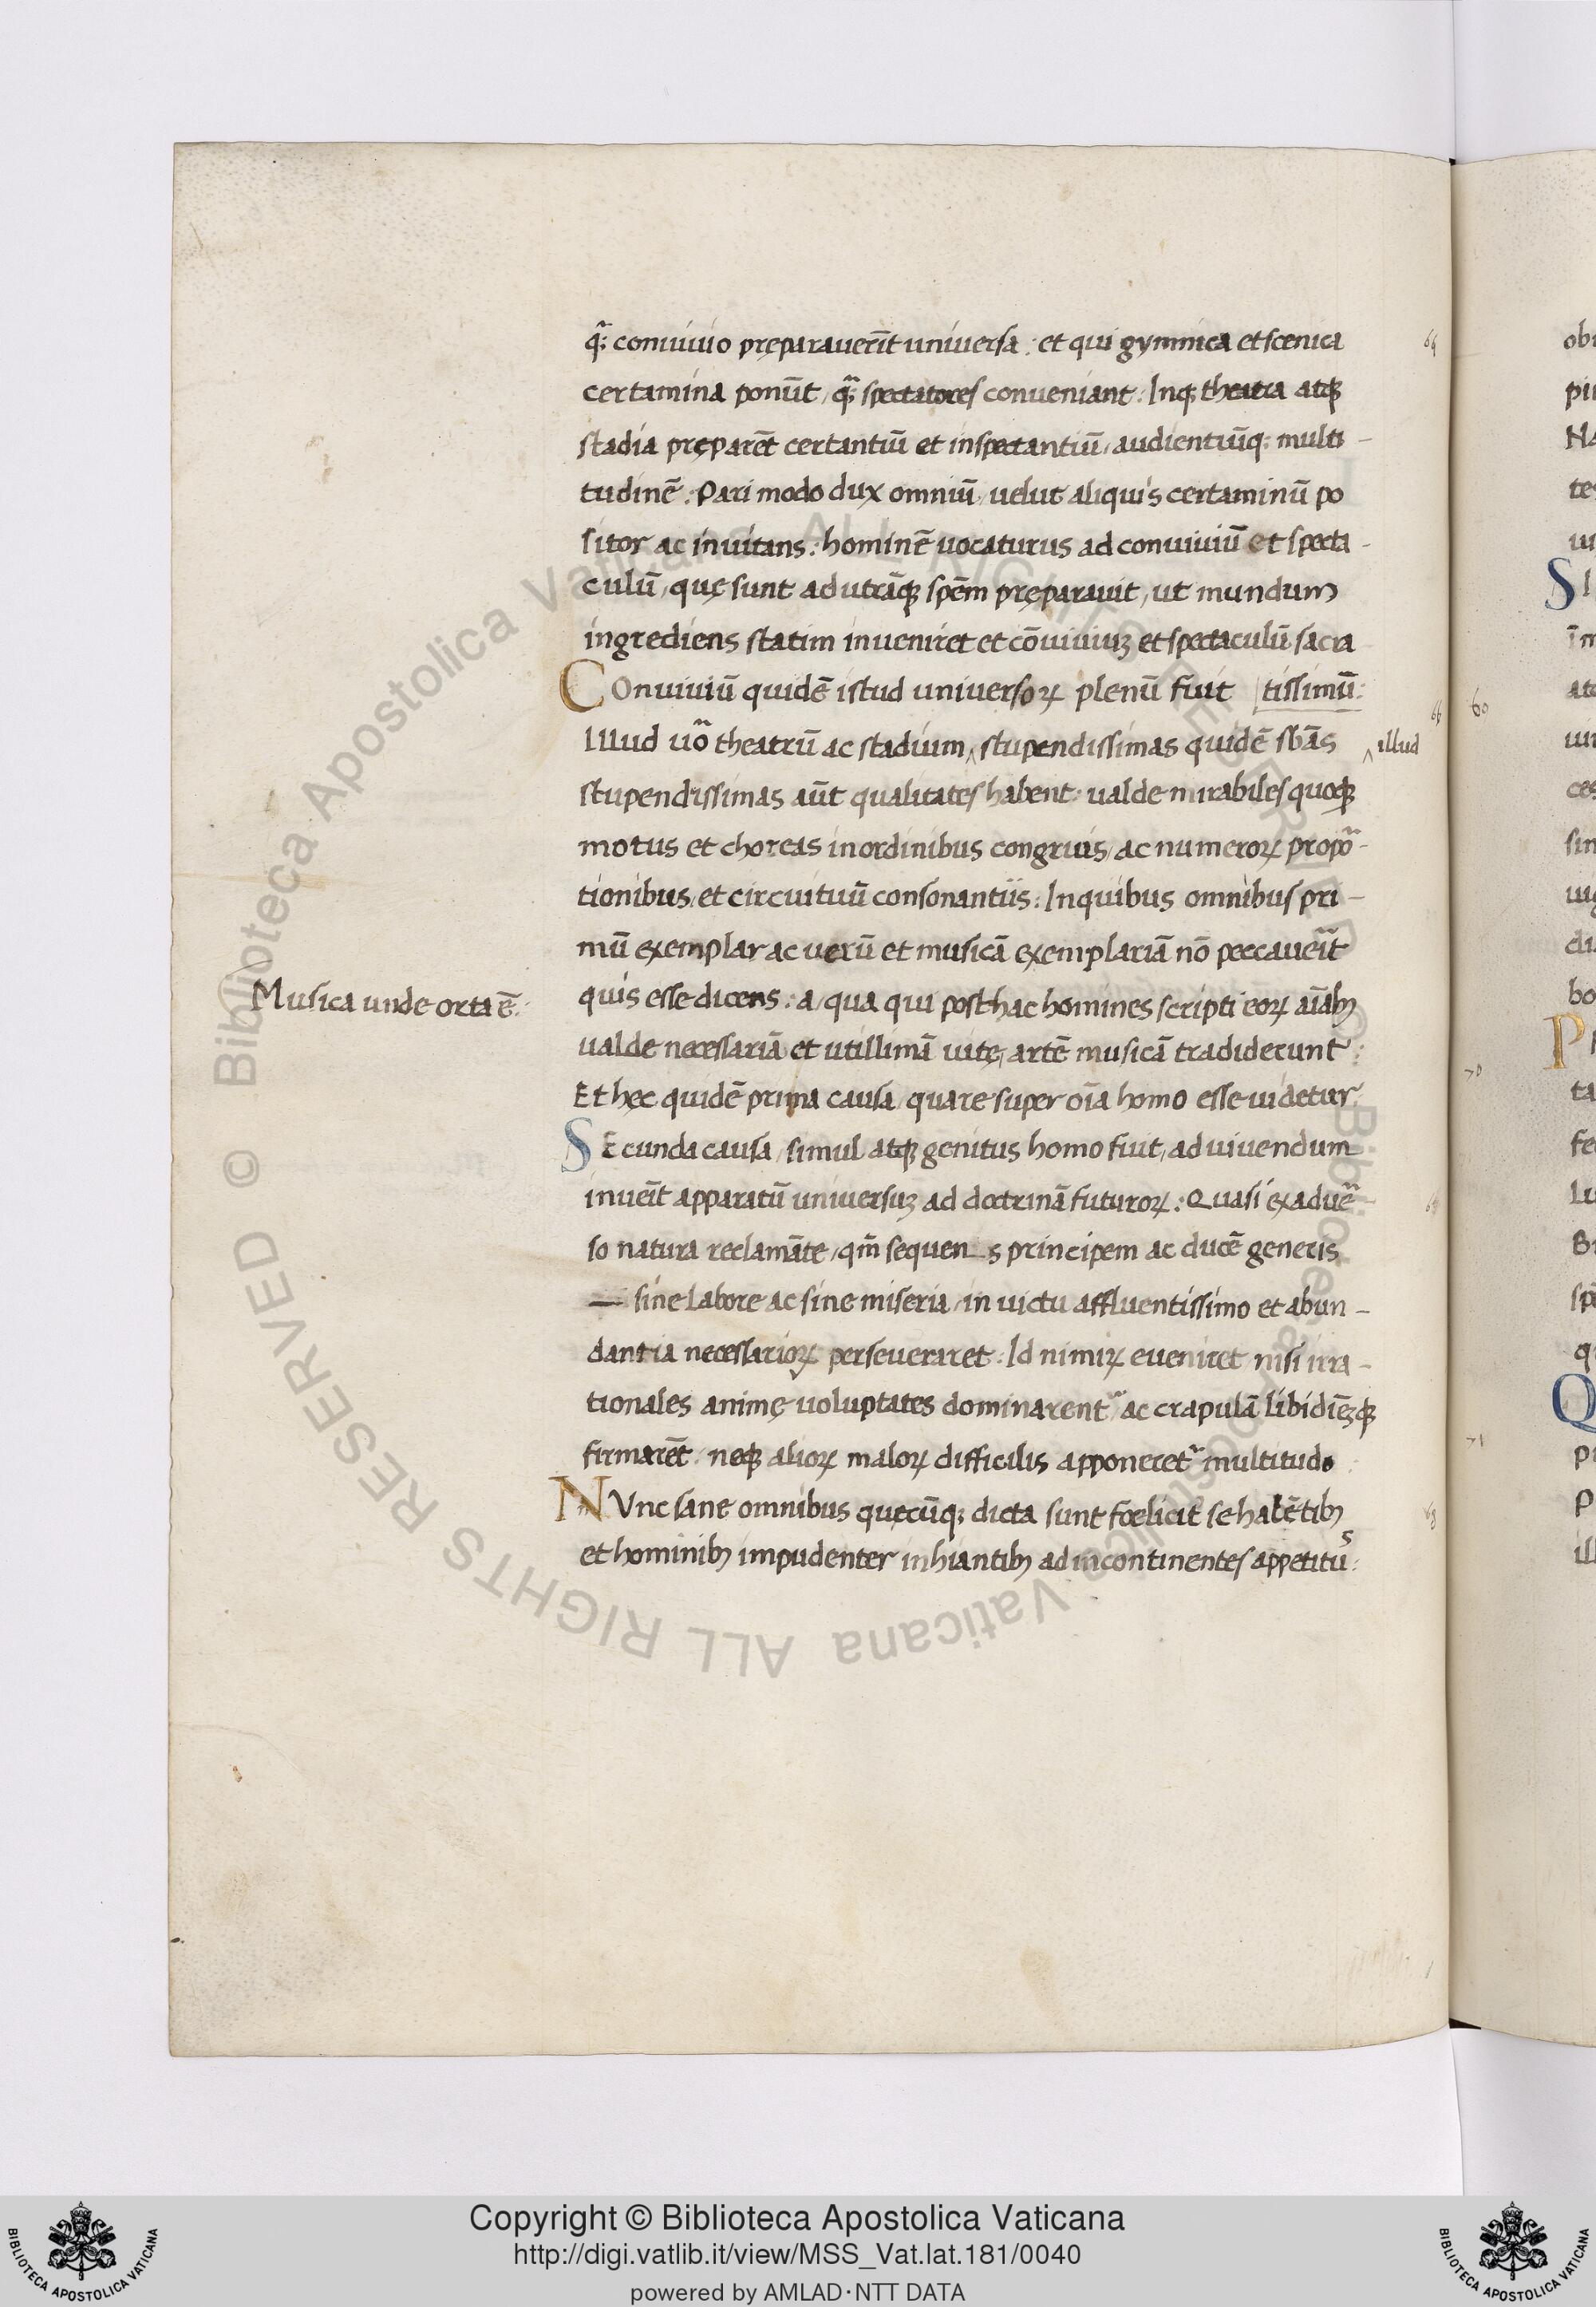 q̃; conuiuio pręparauerīt uniuersa : et qui gymnica et scenica
certamina ponūt, q̃; spectatores conueniant : Inq; theatra atq;
stadia pręparēt certantiū et inspectantiū, audientiūq; multi-
tudinē : Pari modo dux omniū, uelut aliquis certaminū po
sitor ac inuitans : hominē uocaturus ad conuiuiū et specta-
culū, quę sunt ad utrāq; spēm pręparauit, ut mundum
ingrediens statim inueniret et cōuiuiuȝ et spectaculū sacra
Conuiuiū quidē istud uniuersoꝝ plenū fuit tissimū :
Illud uoᷓ theatrū ac stadium, stupendissimas quidē sbās
illud
stupendissimas aūt qualitates habent : ualde mirabiles quoq;
motus et choreas in ordinibus congruis, ac numeroꝝ propoᷓ-
tionibus, et circuituū consonantiis : In quibus omnibus pri-
mū exemplar ac uerū et musicā exemplariā nō peccaueīt
Musica unde orta ē :
quis esse dicens : a, qua qui posthac homines scripti eoꝝ aīabꝰ
ualde necessariā et utillimā uitę, artē musicā tradiderunt :
Et hęc quidē prima causa, quare super oīa homo esse uidetur :
Secunda causa, simul atq; genitus homo fuit, ad uiuendum
inueīt apparatū uniuersuȝ ad doctrinā futuroꝝ : Quasi ex adueᷓ
so natura reclamāte, qm̄ sequens principem ac ducē generis
— sine labore ac sine miseria, in uictu affluentissimo et abun-
dantia necessarioꝝ perseueraret : Id nimiꝝ eueniret nisi irra-
tionales animę uoluptates dominarentᷓ ac crapulā libidinēȝq;
firmarēt, neq; alioꝝ maloꝝ difficilis apponeretᷓ multitudo :
Nunc sane omnibus quęcūq; dicta sunt foelicit̃ se habētibꝰ
et hominibꝰ impudenter inhiantibꝰ ad incontinentes appetitus :
Copyright © Biblioteca Apostolica Vaticana
http://digi.vatlib.it/view/MSS_Vat.lat.181/0040
powered by AMLAD·NTT DATA